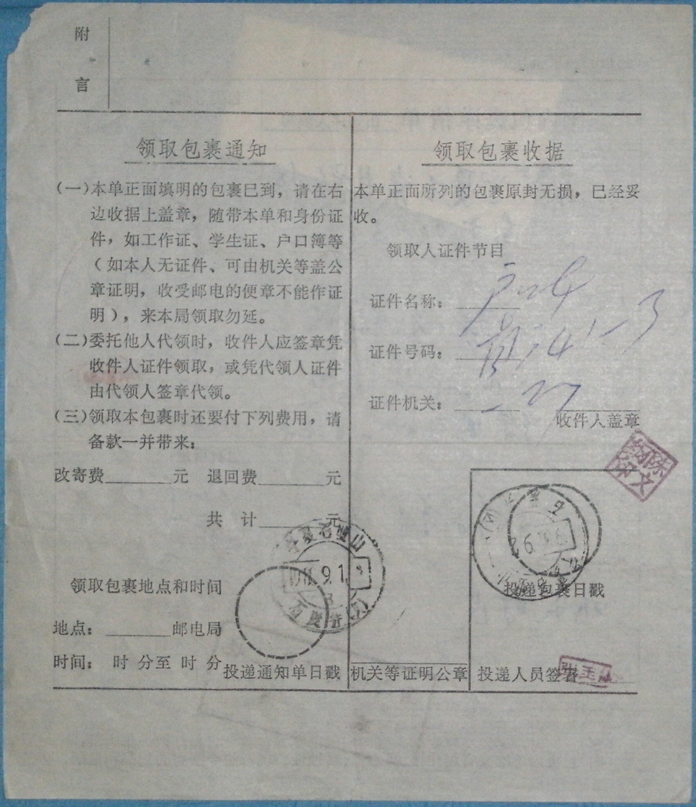 附
言
领取包裹通知
(一)本单正面填明的包裹已到，请在右
边收据上盖章，随带本单和身份证
件，如工作证、学生证、户口簿等
（如本人无证件、可由机关等盖公
章证明，收受邮电的便章不能作证
明），来本局领取勿延。
(二)委托他人代领时，收件人应签章凭
收件人证件领取，或凭代领人证件
由代领人签章代领。
(三)领取本包裹时还要付下列费用，请
备款一并带来：
改寄费______元 退回费______元
共 计______元
领取包裹地点和时间
地点：______邮电局
时间： 时 分至 时 分
投递通知单日戳
领取包裹收据
本单正面所列的包裹原封无损，已经妥
收。
领取人证件节目
证件名称：
证件号码：
证件机关：
收件人盖章
机关等证明公章
投递包裹日戳
投递人员签章